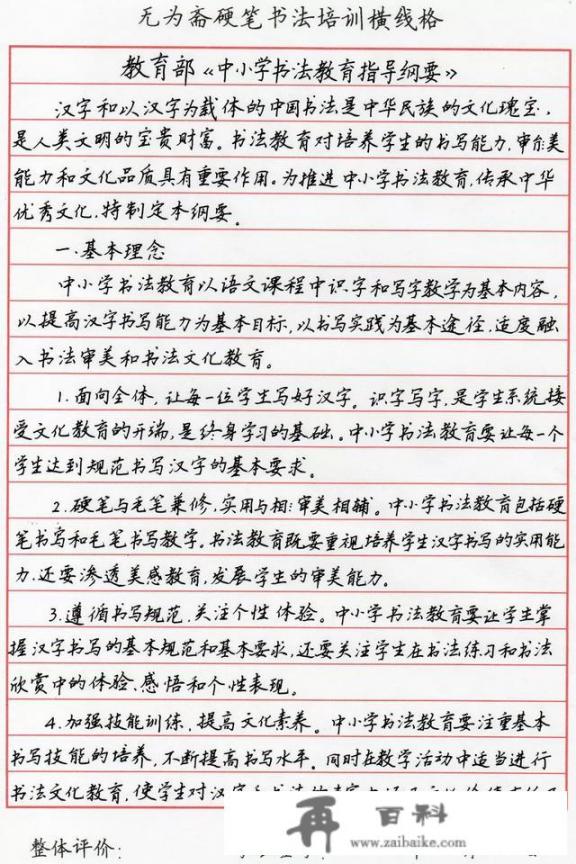 无为斋硬笔书法培训横线格
教育部《中小学书法教育指导纲要》
汉字和以汉字为载体的中国书法是中华民族的文化瑰宝,
是人类文明的宝贵财富。书法教育对培养学生的书写能力,审美
能力和文化品质具有重要作用。为推进中小学书法教育,传承中华
优秀文化,特制定本纲要。
一、基本理念
中小学书法教育以语文课程中识字和写字教学为基本内容,
以提高汉字书写能力为基本目标,以书写实践为基本途径,适度融
入书法审美和书法文化教育。
1.面向全体,让每一位学生写好汉字。识字写字,是学生系统接
受文化教育的开端,是终身学习的基础。中小学书法教育要让每一个
学生达到规范书写汉字的基本要求。
2.硬笔与毛笔兼修,实用与相:审美相辅。中小学书法教育包括硬
笔书写和毛笔书写教学。书法教育既要重视培养学生汉字书写的实用能
力,还要渗透美感教育,发展学生的审美能力。
3.遵循书写规范,关注个性体验。中小学书法教育要让学生掌
握汉字书写的基本规范和基本要求,还要关注学生在书法练习和书法
欣赏中的体验、感悟和个性表现。
4.加强技能训练,提高文化素养。中小学书法教育要注重基本
书写技能的培养,不断提高书写水平。同时在教学活动中适当进行
书法文化教育,使学生对汉字
整体评价:
再百科
www.zaibaike.com